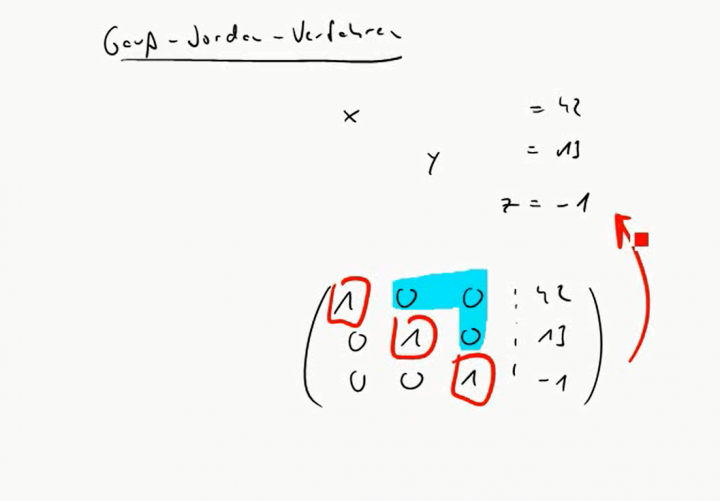 Gauß-Jordan-Verfahren
x = 42
y = 13
z = -1
1 0 0 : 42
0 1 0 : 13
0 0 1 : -1